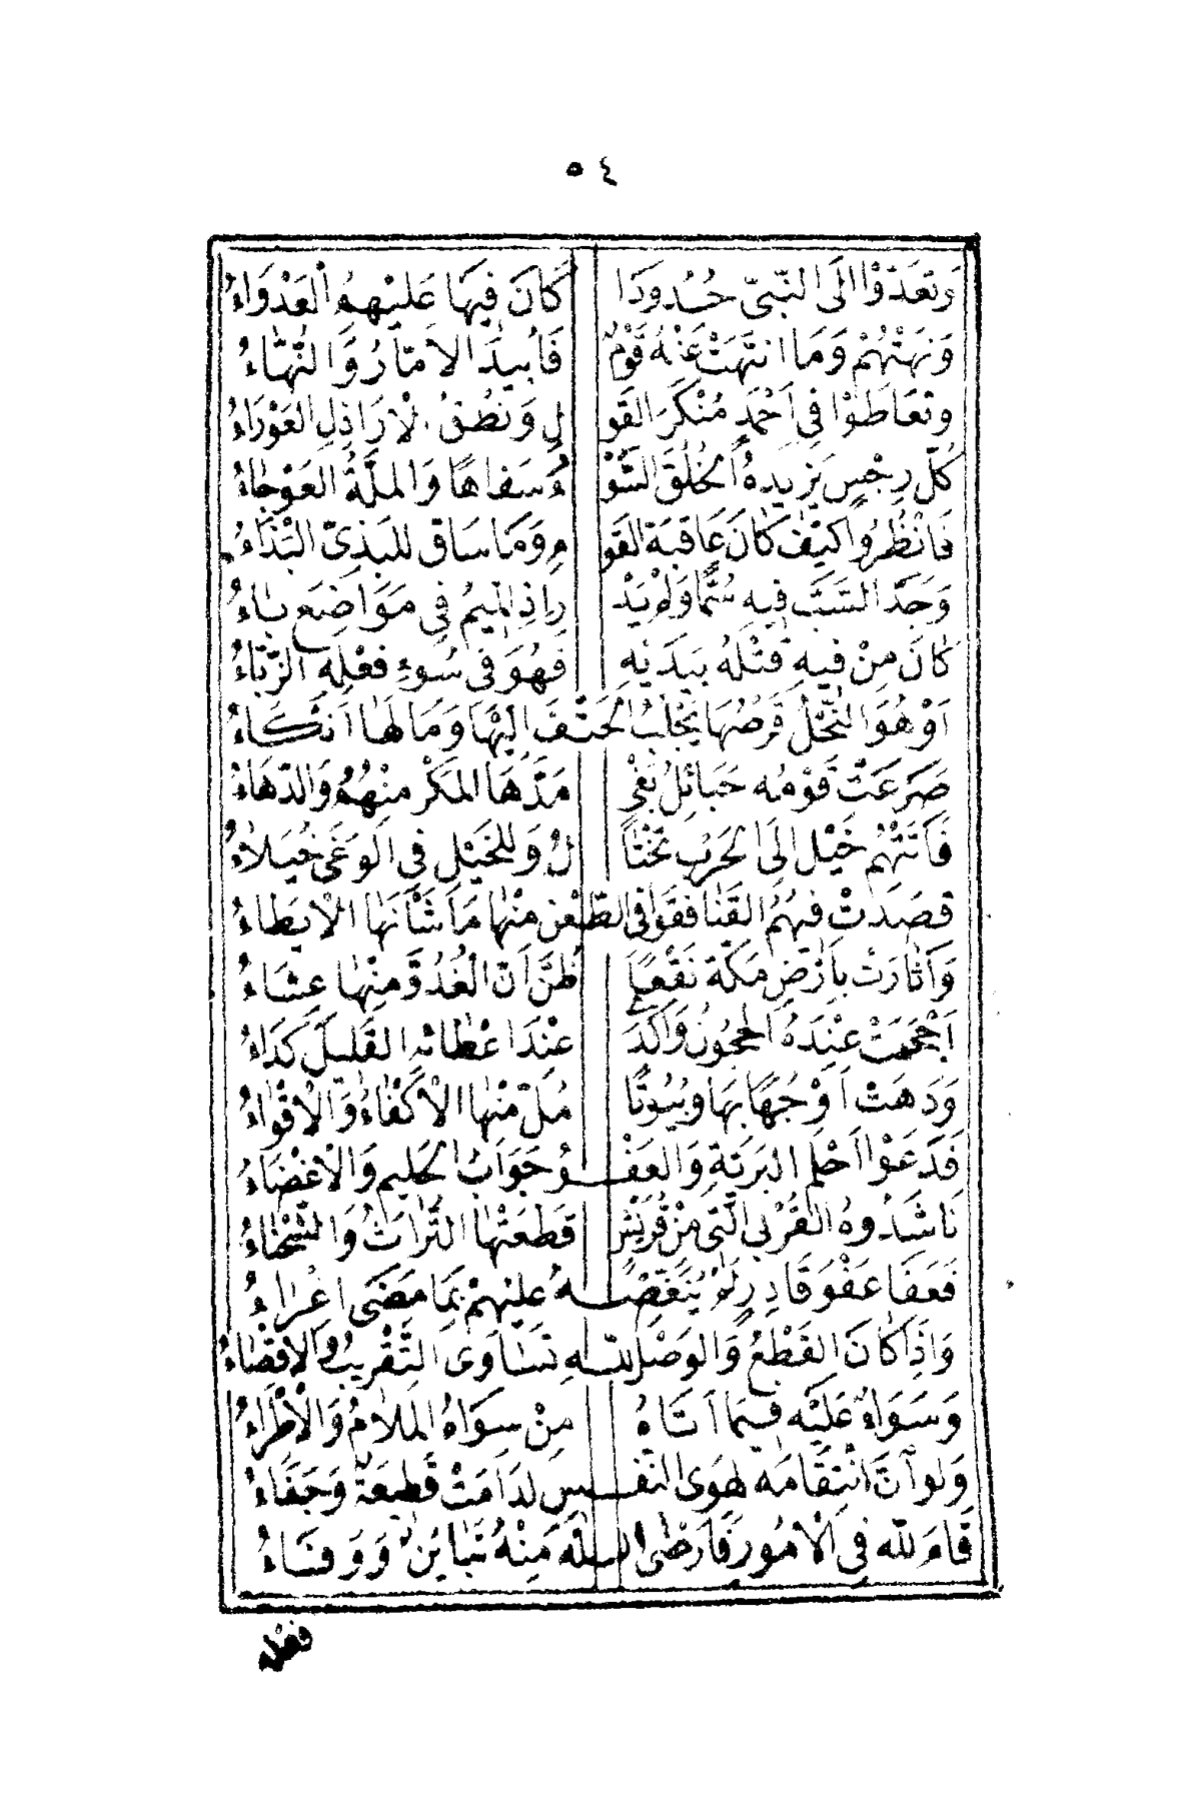 ٥٤
وَتَعَدَّوْا اِلَى النَّبِىّ حُدُودًا كَانَ فِيهَا عَلَيْهِمُ الْعَدْوَاءُ
وَنَهَتْهُمْ وَمَا انْتَهَتْ عَنْهُ قَوْمٌ فَاُبِيدَ الاَمّارُ وَالنَّهَّاءُ
وَتَعَاطَوْا فِى اَحْمَدٍ مُنْكَرَ القَوْ لِ وَنُطْقُ الْاَرَاذِلِ العَوْرَاءُ
كُلّ رِجْسٍ يَزِيدُهُ الْخُلُقُ السُّوْ ءُ سَفَاهًا وَالمِلَّةُ العَوْجَاءُ
فَانْظُرُوا كَيْفَ كَانَ عَاقِبَةُ القَوْ مِ وَمَا سَاقَ لِلبَذِىّ البَذَاءُ
وَجَدَ السَّبَّ فِيهِ سُمًّا وَلَمْ يَدْ رِ اِذِ المِيمُ فِى مَوَاضِعَ بَاءُ
كَانَ مِنْ فِيهِ قَتْلُهُ بِيَدَيْهِ فَهُوَ فِى سُوءِ فِعْلِهِ الزَّبَّاءُ
اَوْ هُوَ النَّحْلُ قَرْصُهَا يَجْلُبُ الْحَتْفَ اِلَيْهَا وَمَا لَهَا اَنْكَاءُ
صَرَعَتْ قَوْمَهُ حَبَائِلُ بَغْىٍ مَدَّهَا المَكْرُ مِنْهُمُ وَالدَّهَاءُ
فَاَتَتْهُمْ خَيْلٌ اِلَى الْحَرْبِ تَخْتَا لُ وَلِلخَيْلِ فِى الْوَغَى خُيَلَاءُ
قَصَدَتْ فِيهُمُ القَنَا فَقَوَافِى الطَّعْنِ مِنْهَا مَا شَانَهَا الْاِيطَاءُ
وَاَثَارَتْ بِاَرْضِ مَكَّةَ نَقْعًا ظُنَّ اَنَّ الْغُدُوَّ مِنْهَا عِشَاءُ
اَحْجَمَتْ عِنْدَهُ الْحَجُونُ وَاَكْدَى عِنْدَ اِعْطَائِهِ القَلِيلَ كَدَاءُ
وَدَهَتْ اَوْجُهًا بِهَا وَبُيُوتًا مُلَّ مِنْهَا الْاَكْفَاءُ وَالْاِقْوَاءُ
فَدَعَوْا اَحْلَمَ البَرِيَّةِ وَالعَفْوُ جَوَابُ الْحَلِيمِ وَالْاِغْضَاءُ
نَاشَدُوهُ القُرْبَى الَّتِى مِنْ قُرَيْشٍ قَطَعَتْهَا التِّرَاتُ وَالشَّحْنَاءُ
فَعَفَا عَفْوَ قَادِرٍ لَمْ يُنَغِّصْهُ عَلَيْهِمْ بِمَا مَضَى اِغْرَاءُ
وَاِذَا كَانَ القَطْعُ وَالوَصْلُ لِلّهِ تَسَاوَى التَّقْرِيبُ وَالاِقْصَاءُ
وَسَوَاءٌ عَلَيْهِ فِيمَا اَتَاهُ مِنْ سِوَاهُ المَلَامُ وَالْاِطْرَاءُ
وَلَوْ اَنَّ انْتِقَامَهُ لِهَوَى النّفْسِ لَدَامَتْ قَطِيعَةٌ وَجَفَاءُ
قَامَ لِلّهِ فِى الْاُمُورِ فَاَرْضَى اللّٰهَ مِنْهُ تَبَايُنٌ وَوَفَاءُ
فعله